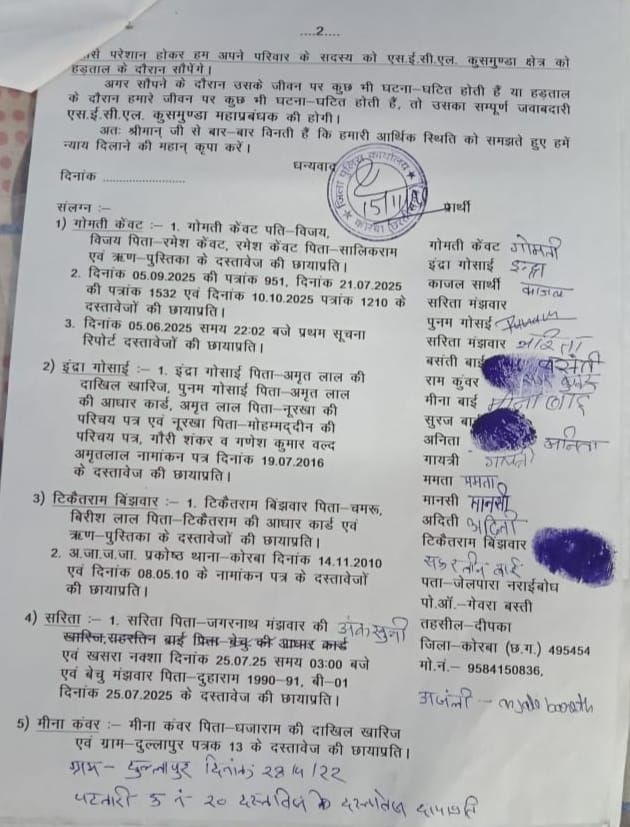 ....2....
से परेशान होकर हम अपने परिवार के सदस्य को एस.ई.सी.एल. कुसमुण्डा क्षेत्र को
हड़ताल के दौरान सौपेंगे।
अगर सौपने के दौरान उसके जीवन पर कुछ भी घटना–घटित होती हैं या हड़ताल
के दौरान हमारे जीवन पर कुछ भी घटना–घटित होती हैं, तो उसका सम्पूर्ण जवाबदारी
एस.ई.सी.एल. कुसमुण्डा महाप्रबंधक की होगी।
अतः श्रीमान् जी से बार–बार विनती हैं कि हमारी आर्थिक स्थिति को समझते हुए हमें
न्याय दिलाने की महान् कृपा करें।
धन्यवाद
जिला पुलिस कार्यालय
15/11
कोरबा
दिनांक ........................
प्रार्थी
संलग्न :–
1) गोमती केंवट :– 1. गोमती केंवट पति–विजय,
विजय पिता–रमेश केंवट, रमेश केंवट पिता–सालिकराम
एवं ऋण–पुस्तिका के दस्तावेज की छायाप्रति।
2. दिनांक 05.09.2025 की पत्रांक 951, दिनांक 21.07.2025
की पत्रांक 1532 एवं दिनांक 10.10.2025 पत्रांक 1210 के
दस्तावेजों की छायाप्रति।
3. दिनांक 05.06.2025 समय 22:02 बजे प्रथम सूचना
रिपोर्ट दस्तावेजों की छायाप्रति।
2) इंद्रा गोसाई :– 1. इंद्रा गोसाई पिता–अमृत लाल की
दाखिल खारिज, पुनम गोसाई पिता–अमृत लाल
की आधार कार्ड, अमृत लाल पिता–नूरखा की
परिचय पत्र एवं नूरखा पिता–मोहम्मददीन की
परिचय पत्र, गौरी शंकर व गणेश कुमार वल्द
अमृतलाल नामांकन पत्र दिनांक 19.07.2016
के दस्तावेज की छायाप्रति।
3) टिकैतराम बिंझवार :– 1. टिकैतराम बिंझवार पिता–चमरू,
बिरीश लाल पिता–टिकैतराम की आधार कार्ड एवं
ऋण–पुस्तिका के दस्तावेजों की छायाप्रति।
2. अ.जा.ज.जा. प्रकोष्ठ थाना–कोरबा दिनांक 14.11.2010
एवं दिनांक 08.05.10 के नामांकन पत्र के दस्तावेजों
की छायाप्रति।
4) सरिता :– 1. सरिता पिता–जगरनाथ मंझवार की अंकसूची
खारिज,सहरतिन बाई पिता–बेचु की आधार कार्ड
एवं खसरा नक्शा दिनांक 25.07.25 समय 03:00 बजे
एवं बेचु मंझवार पिता–दुहाराम 1990–91, बी–01
दिनांक 25.07.2025 के दस्तावेज की छायाप्रति।
5) मीना कंवर :– मीना कंवर पिता–धजाराम की दाखिल खारिज
एवं ग्राम–दुल्लापुर पत्रक 13 के दस्तावेज की छायाप्रति।
ग्राम – दुल्लापुर दिनांक 28/4/22
गोमती केंवट गोमती
इंद्रा गोसाई इन्द्रा
काजल सार्थी काजल
सरिता मंझवार
पुनम गोसई Punam
सरिता मंझवार सरिता
बसंती बाई बसंती
राम कुंवर
मीना बाई मीना बाई
सुरज बा
अनिता अनिता
गायत्री गायत्री
ममता ममता
मानसी मानसी
अदिती अदिती
टिकैतराम बिंझवार
पता–जेलपारा नराईबोध
पो.ऑ.–गेवरा बस्ती
तहसील–दीपका
जिला–कोरबा (छ.ग.) 495454
मो.नं.– 9584150836,
अजंली –